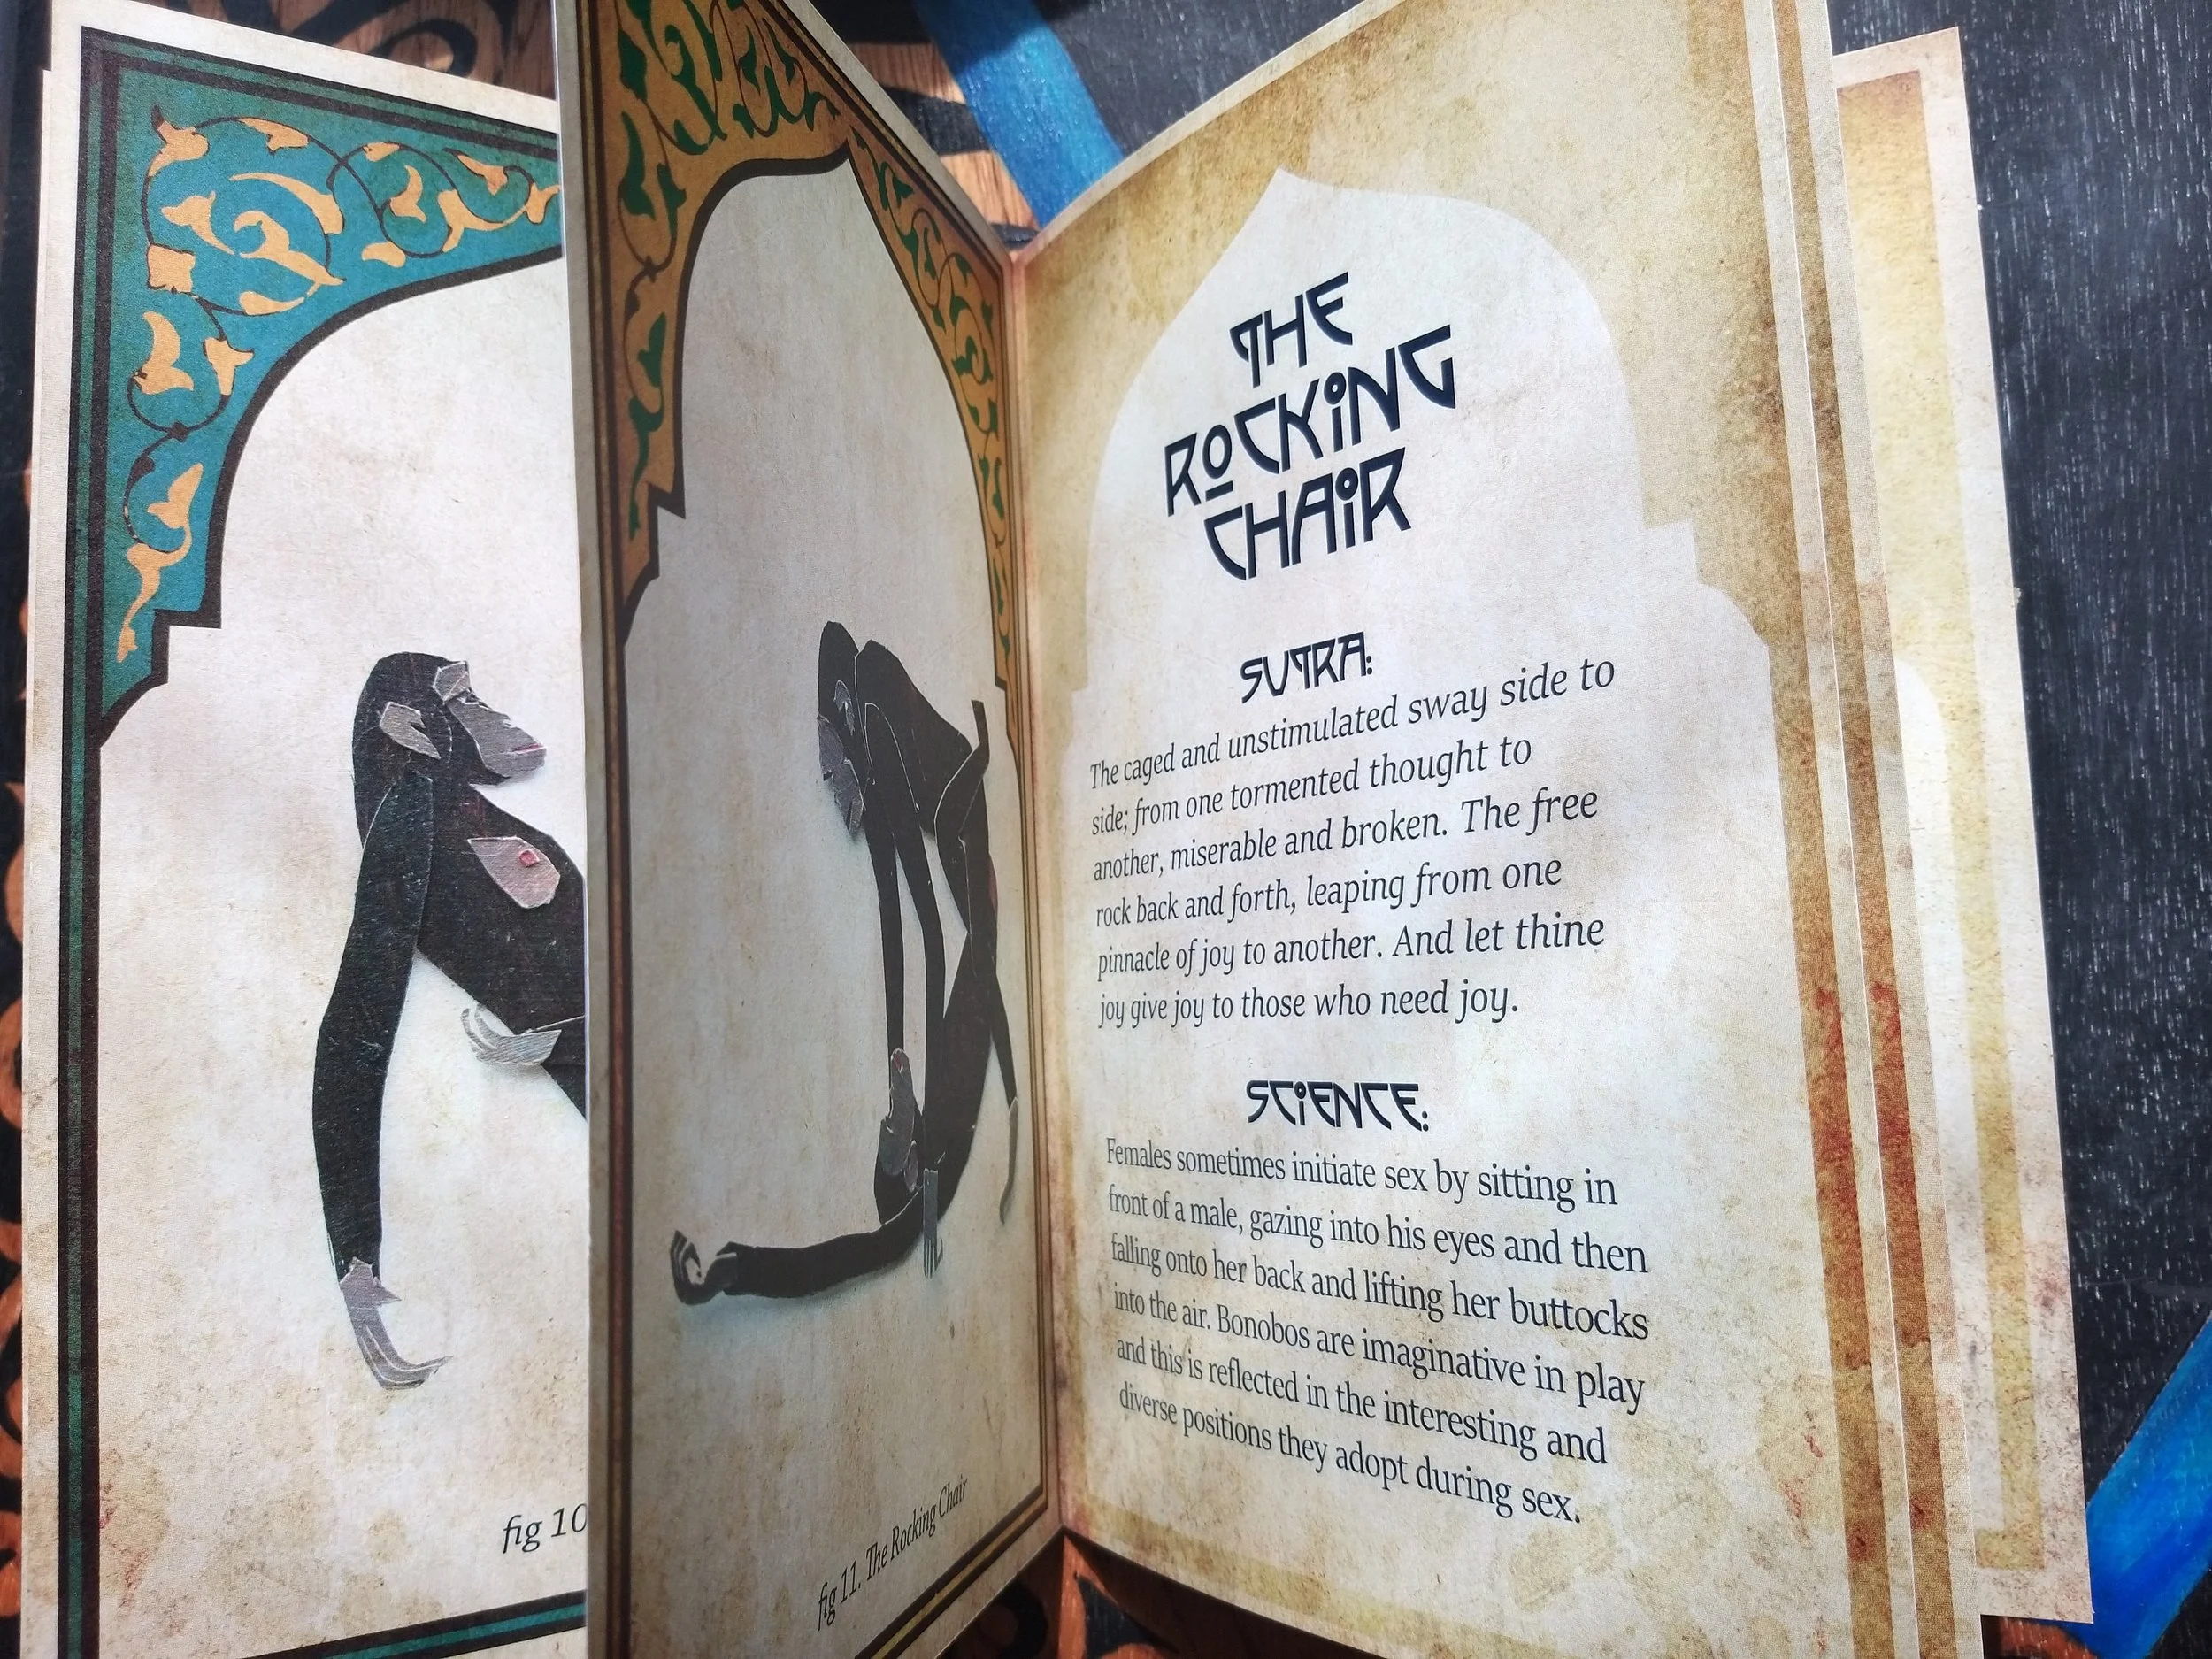 fig 10
fig 11. The Rocking Chair
THE
ROCKiNG
CHAiR
SUTRA:
The caged and unstimulated sway side to
side; from one tormented thought to
another, miserable and broken. The free
rock back and forth, leaping from one
pinnacle of joy to another. And let thine
joy give joy to those who need joy.
SCiENCE:
Females sometimes initiate sex by sitting in
front of a male, gazing into his eyes and then
falling onto her back and lifting her buttocks
into the air. Bonobos are imaginative in play
and this is reflected in the interesting and
diverse positions they adopt during sex.